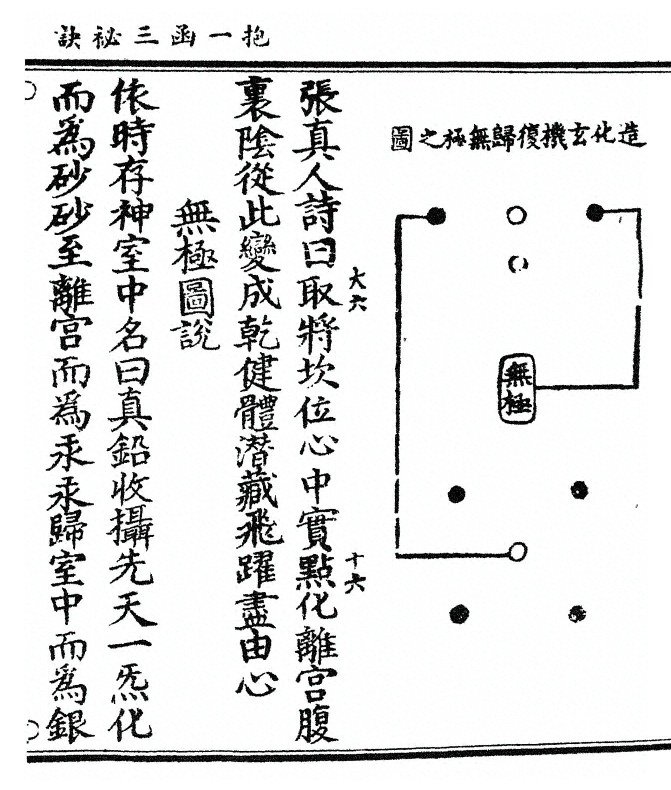 抱一函三祕訣
造化玄機復歸無極之圖
無極
大六
十六
張真人詩曰取將坎位心中實點化離宮腹
裏陰從此變成乾健體潛藏飛躍盡由心
無極圖說
依時存神室中名曰真鉛收攝先天一炁化
而為砂砂至離宮而為汞汞歸室中而為銀